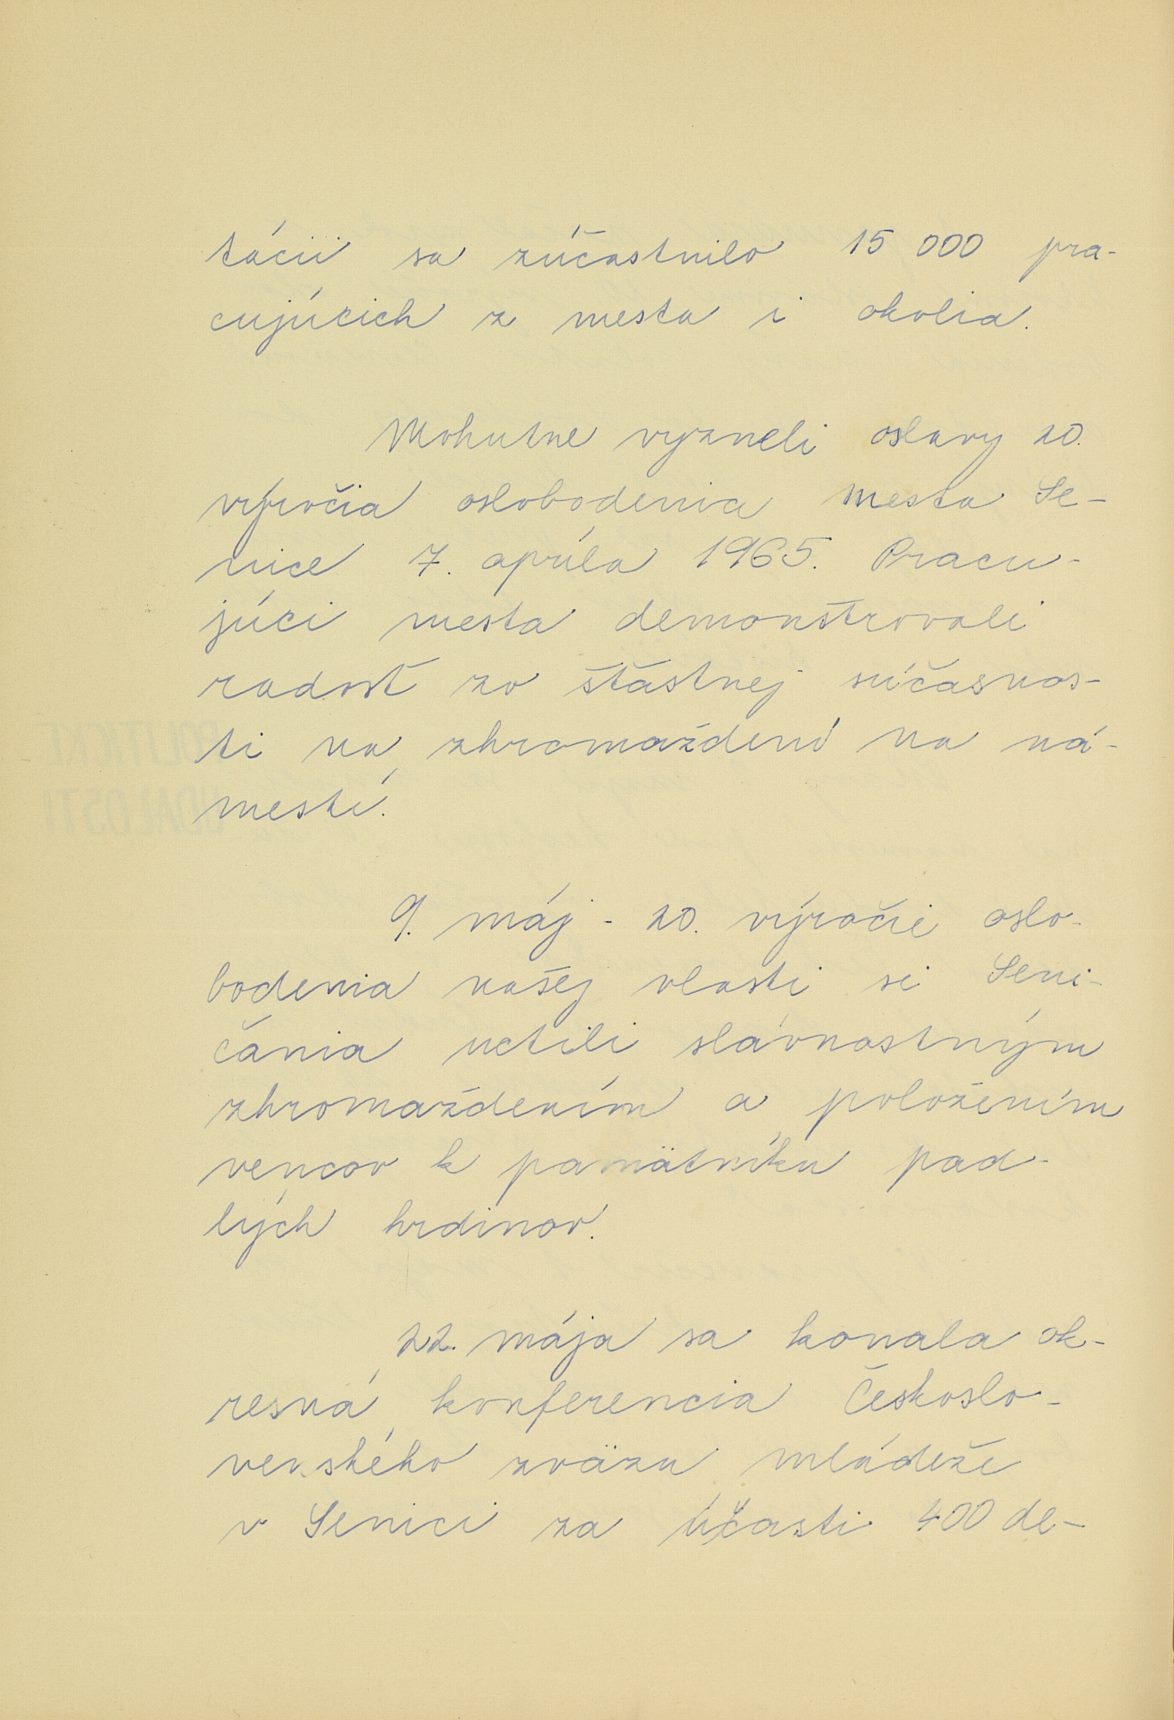 tácii sa zúčastnilo 15 000 pra-
cujúcich z mesta i okolia.
Mohutne vyzneli oslavy 20.
výročia oslobodenia mesta Se-
nice 7. apríla 1965. Pracu-
júci mesta demonštrovali
radosť zo šťastnej súčasnos-
ti na zhromaždení na ná-
mestí.
9. máj - 20. výročie oslo-
bodenia našej vlasti si Seni-
čania uctili slávnostným
zhromaždením a položením
vencov k pamätníku pad-
lých hrdinov.
22. mája sa konala ok-
resná konferencia Českoslo-
venského zväzu mládeže
v Senici za účasti 400 de-